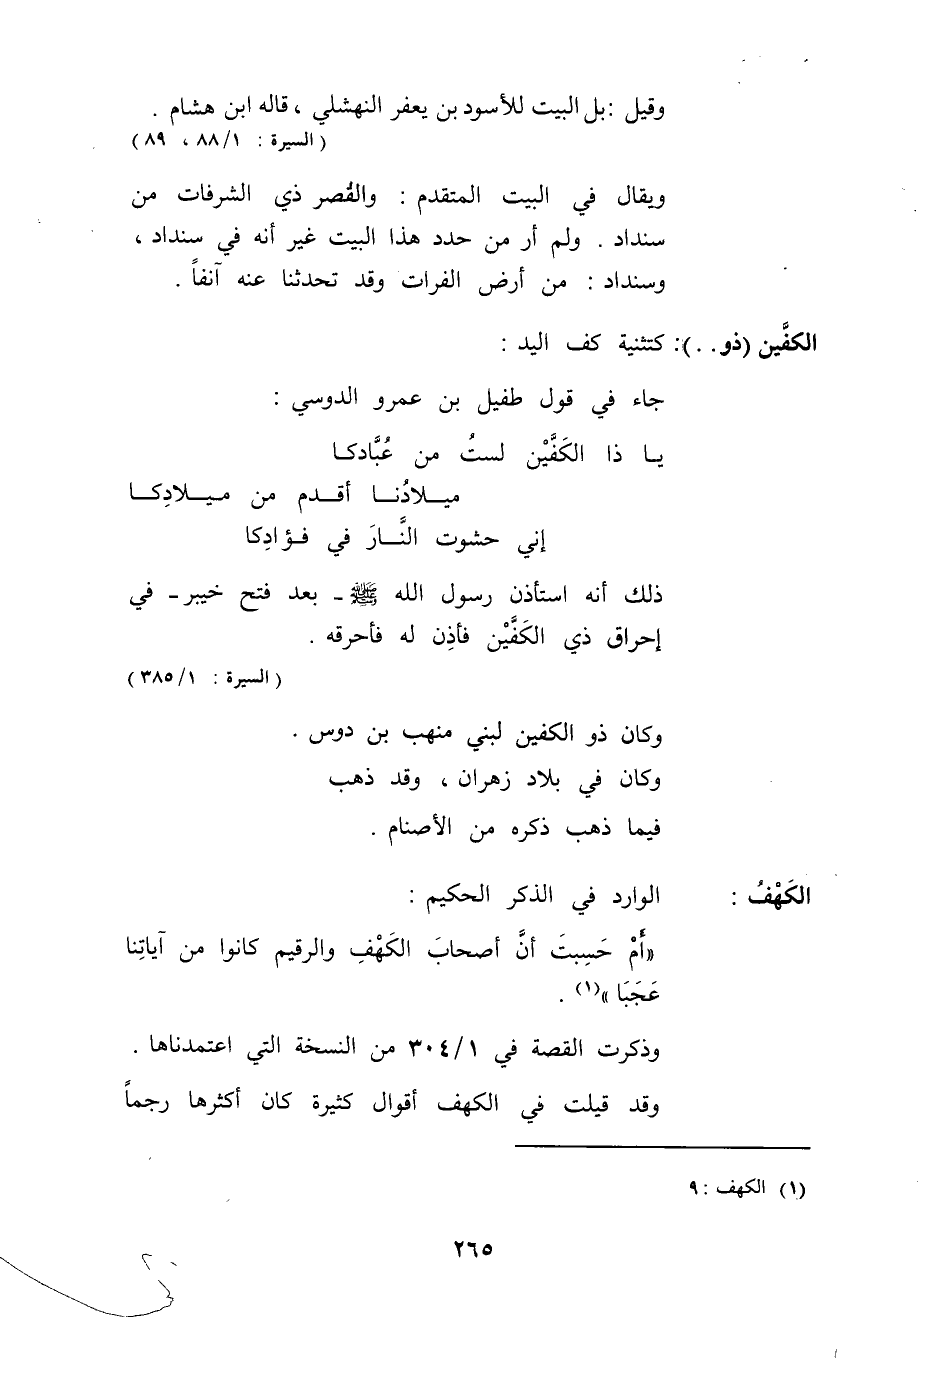 وقيل : بل البيت للأسود بن يعفر النهشلي ، قاله ابن هشام .
( السيرة : ٨٨/١ ، ٨٩ )
ويقال في البيت المتقدم : والقُصر ذي الشرفات من
سنداد . ولم أر من حدد هذا البيت غير أنه في سنداد ،
وسنداد : من أرض الفرات وقد تحدثنا عنه آنفاً .
الكفَّين (ذو . . ) : كتثنية كف اليد :
جاء في قول طفيل بن عمرو الدوسي :
يــا ذا الكَفَّيْن لستُ من عُبَّادكـا
ميــلادُنــا أقــدم من ميــلادِكــا
إني حشوت النَّــارَ في فـؤادِكا
ذلك أنه استأذن رسول الله ﷺ ـ بعد فتح خيبر ـ في
إحراق ذي الكَفَّيْن فأذِن له فأحرقه .
( السيرة : ٣٨٥/١ )
وكان ذو الكفين لبني منهب بن دوس .
وكان في بلاد زهران ، وقد ذهب
فيما ذهب ذكره من الأصنام .
الكَهْفُ : الوارد في الذكر الحكيم :
«أَمْ حَسِبتَ أنَّ أصحابَ الكَهْفِ والرقيم كانوا من آياتِنا
عَجَبَا »(١) .
وذكرت القصة في ٣٠٤/١ من النسخة التي اعتمدناها .
وقد قيلت في الكهف أقوال كثيرة كان أكثرها رجماً
(١) الكهف : ٩
٢٦٥